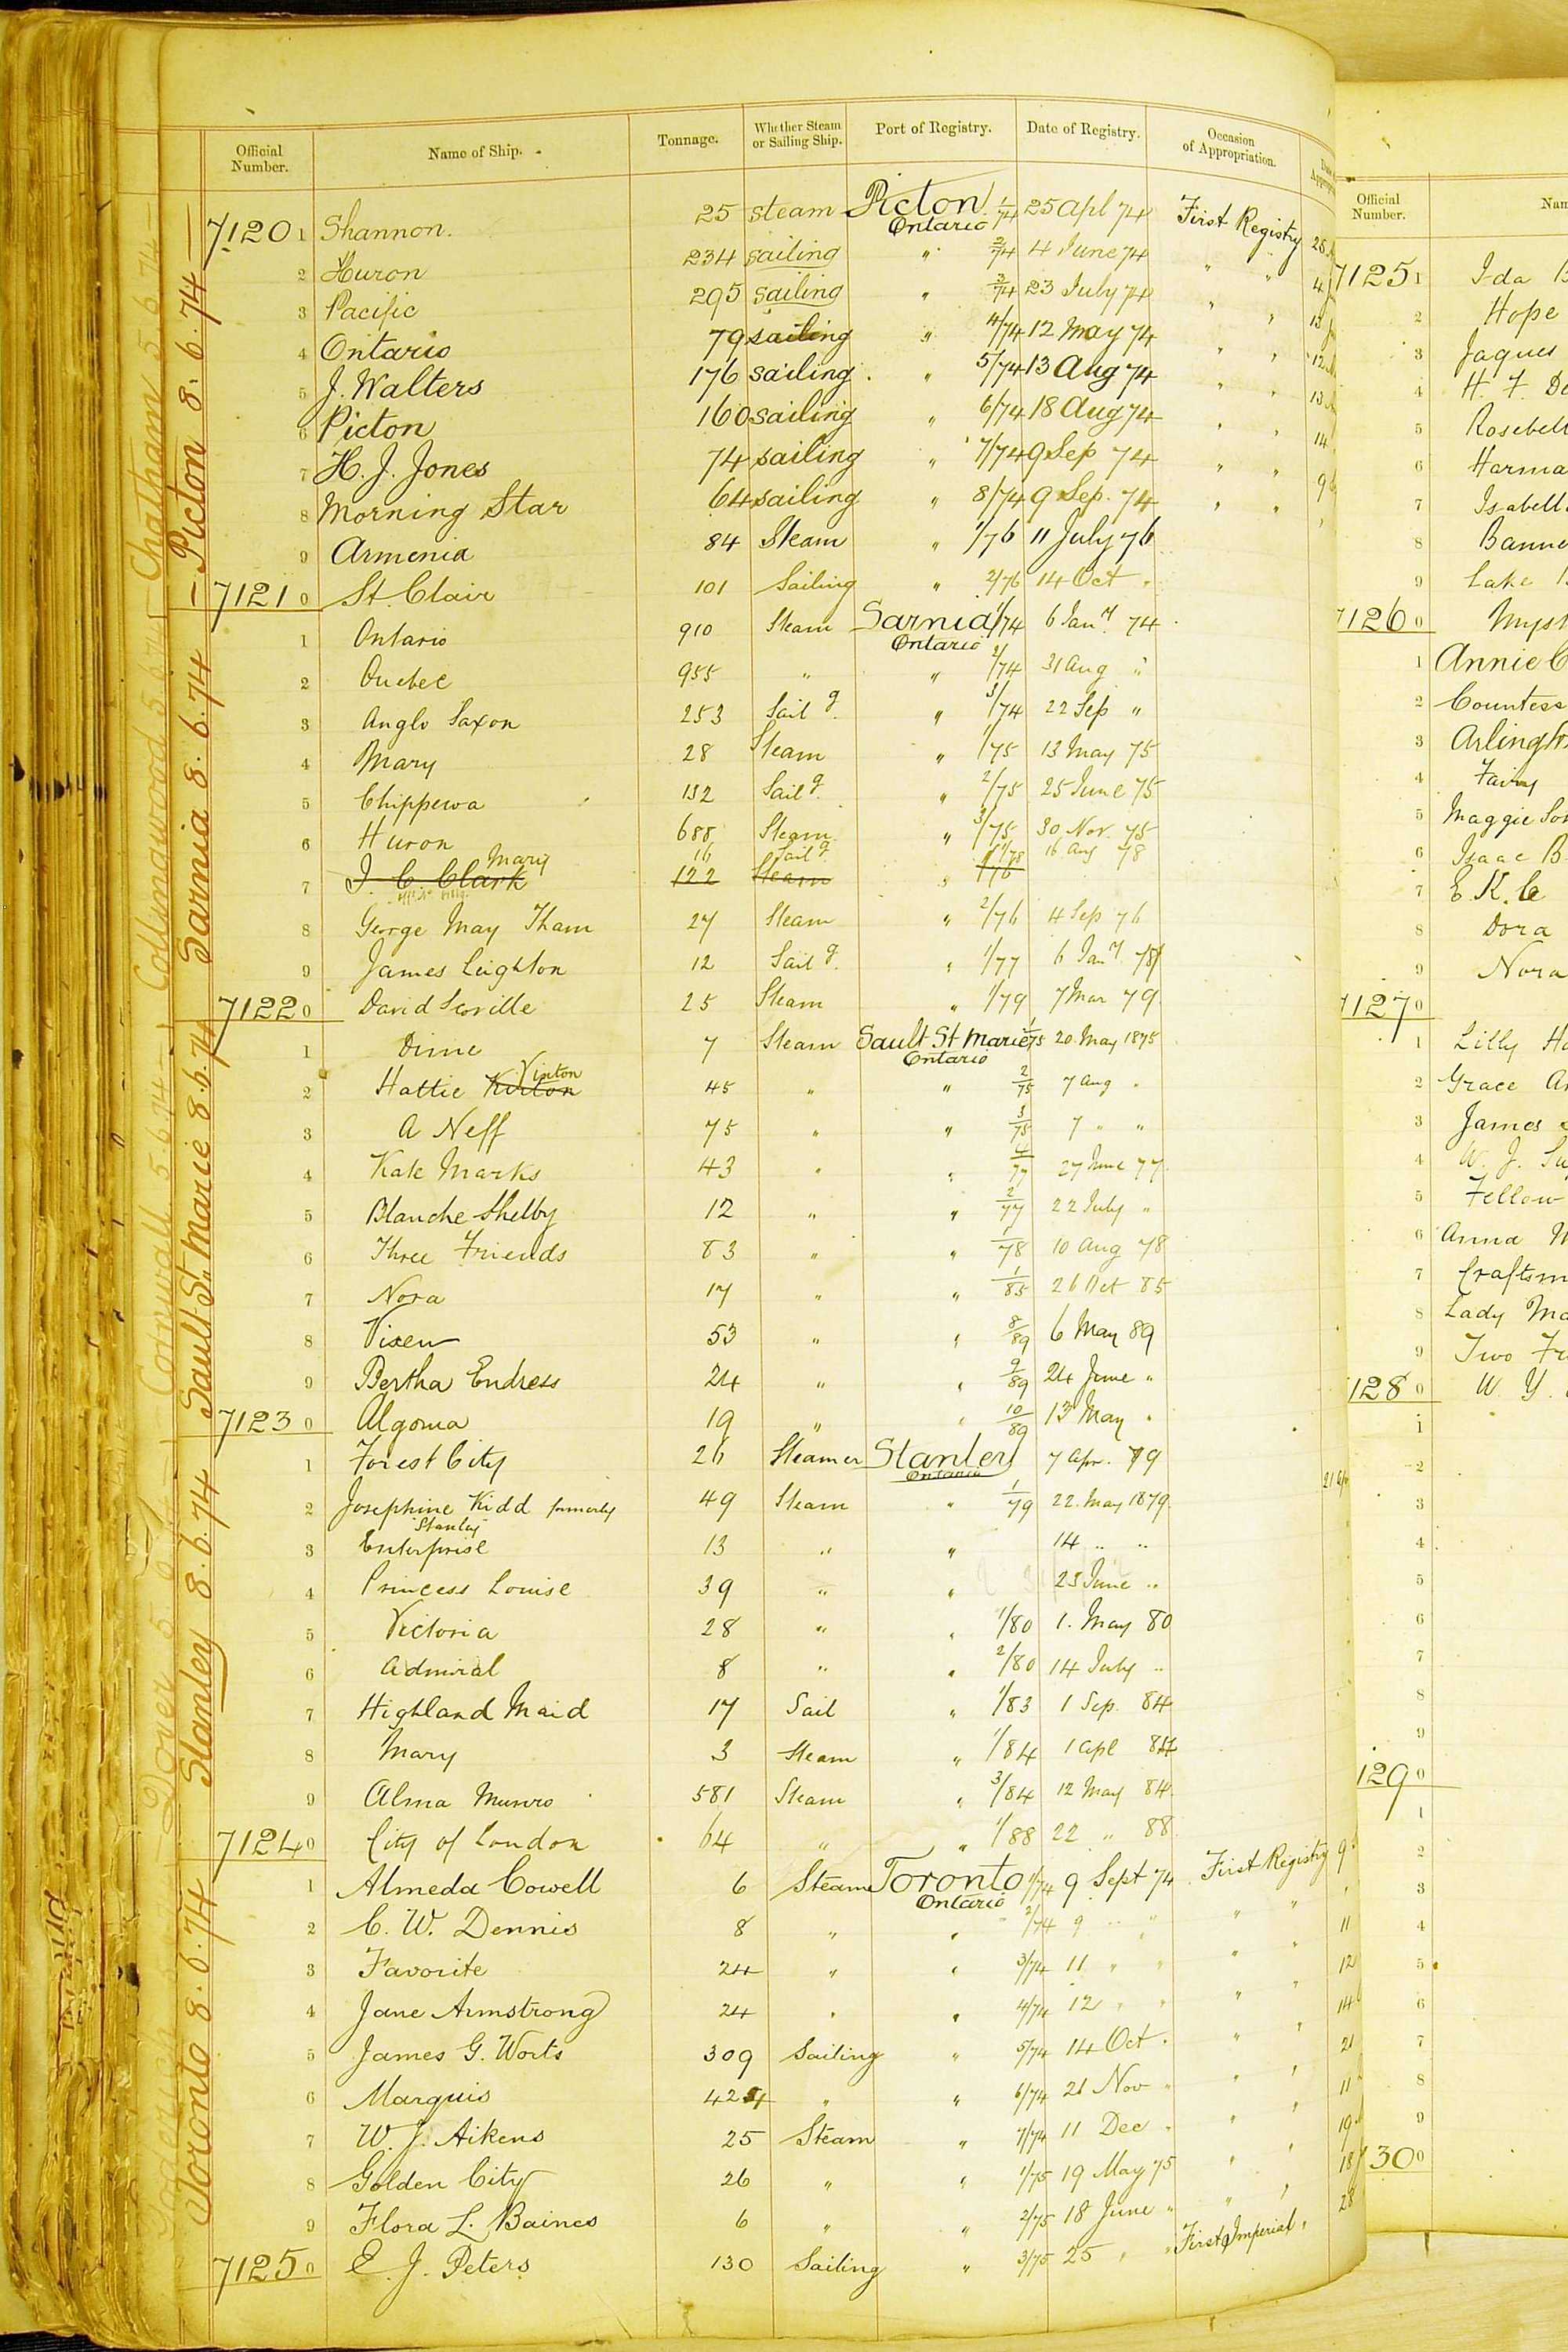 Official Number. Name of Ship. Tonnage. Whether Steam or Sailing Ship. Port of Registry. Date of Registry. Occasion of Appropriation.
71201 Shannon. 25 steam Picton Ontario 1/74 25 Apl 74 First Registry 25
2 Huron 234 sailing " 2/74 4 June 74 " " 4
3 Pacific 295 sailing " 3/74 23 July 74 " "
4 Ontario 79 sailing " 4/74 12 May 74 " " 12
5 J. Walters 176 sailing " 5/74 13 Aug 74 " " 13
6 Picton 160 sailing " 6/74 18 Aug 74 " "
7 H. J. Jones 74 sailing " 7/74 9 Sep 74 " " 9
8 Morning Star 64 sailing " 8/74 9 Sep. 74 " "
9 Armenia 84 Steam " 1/76 11 July 76
71210 St. Clair 101 Sailing " 2/76 14 Oct "
1 Ontario 910 Steam Sarnia Ontario 1/74 6 Jany. 74
2 Quebec 955 " " 2/74 31 Aug "
3 Anglo Saxon 253 Sailg. " 3/74 22 Sep "
4 Mary 28 Steam " 1/75 13 May 75
5 Chippewa 132 Sailg. " 2/75 25 June 75
6 Huron 688 Steam " 3/75 30 Nov. 75
Mary 16 Sailg. 1/78 16 Aug 78
7 J. C. Clark 122 Steam " 1/76
8 George May Tham 27 Steam " 2/76 4 Sep 76
9 James Leighton 12 Sailg. " 1/77 6 Jany. 78
71220 David Scoville 25 Steam " 1/79 7 Mar 79
1 Dime 7 Steam Sault St Marie Ontario 1/75 20 May 1875
2 Hattie Kirton Vinton 45 " " 2/75 7 Aug "
3 A Neff 75 " " 3/75 7 " "
4 Kate Marks 43 " " 77 27 June 77
5 Blanche Shelby 12 " " 2/77 22 July "
6 Three Friends 83 " " 1/78 10 Aug 78
7 Nora 17 " " 1/85 26 Oct 85
8 Vixen 53 " " 8/89 6 May 89
9 Bertha Endress 24 " " 9/89 24 June "
71230 Algoma 19 " " 10/89 13 May "
1 Forest City 26 Steamer Stanley Ontario 7 Apr. 79
2 Josephine Kidd formerly Stanley 49 Steam " 1/79 22 May 1879
3 Enterprise 13 " " 14 " "
4 Princess Louise 39 " " 23 June "
5 Victoria 28 " " 1/80 1. May 80
6 Admiral 8 " " 2/80 14 July "
7 Highland Maid 17 Sail " 1/83 1 Sep. 84
8 Mary 3 Steam " 1/84 1 Apl 84
9 Alma Munro 581 Steam " 3/84 12 May 84
71240 City of London 64 " " 1/88 22 " 88
1 Almeda Cowell 6 Steam Toronto Ontario 1/74 9 Sept 74 First Registry 9
2 C. W. Dennis 8 " " 2/74 9 " " " "
3 Favorite 24 " " 3/74 11 " " " " 11
4 Jane Armstrong 24 " " 4/74 12 " " " " 12
5 James G. Worts 309 Sailing " 5/74 14 Oct " " " 14
6 Marquis 424 " " 6/74 21 Nov " " " 21
7 W. J. Aikens 25 Steam " 7/74 11 Dec " " " 11
8 Golden City 26 " " 1/75 19 May 75 " " 19
9 Flora L. Baines 6 " " 2/75 18 June " " " 18
71250 E. J. Peters 130 Sailing " 3/75 25 " " First Imperial " 28
Picton 8. 6. 74
Sarnia 8. 6. 74
Sault St. Marie 8. 6. 74
Stanley 8. 6. 74
Toronto 8. 6. 74
Chatham 5 6 74
Collingwood 5 6 74
Cornwall 5. 6. 74
Dover 5 6 74
Official Number.
71251 Ida
2 Hope
3 Jaques
4 H. F.
5
6
7
8
9 Lake
71260
1 Annie
2 Countess
3
4 Fairy
5 Maggie
6 Isaac B
7 E. K.
8 Dora
9 Nora
71270
1 Lilly
2 Grace
3 James
4 W. J.
5 Fellow
6 Anna
7
8 Lady
9 Two
1280 W. Y.
1
2
3
4
5
6
7
8
9
1290
1
2
3
4
5
6
7
8
9
1300